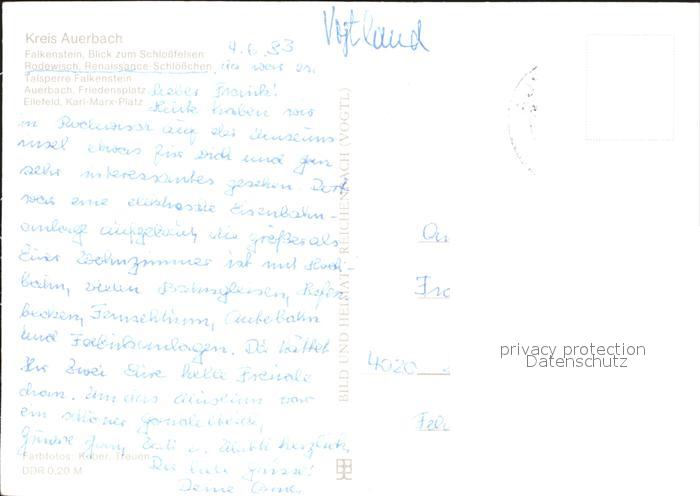 Vogtland
Kreis Auerbach
4.6.83
Falkenstein, Blick zum Schloßfelsen
Rodewisch, Renaissance-Schlößchen, da war es.
Talsperre Falkenstein
Auerbach, Friedensplatz
Ellefeld, Karl-Marx-Platz
Lieber Frank!
Heute haben wir
in Rodewisch auf der Museums
insel etwas für Dich und
sehr interessantes gesehen. Dort
war eine elektrische Eisenbahn-
anlage aufgebaut, die größer als
Euer Wohnzimmer ist mit Hoch-
bahn, vielen Bahngleisen, Hafen
becken, Fernsehturm, Autobahn
und Fabrikanlagen. Da hättet
Ihr Zwei Eure helle Freude
dran. Um das Museum war
ein schöner Gondelteich,
Grüße herzlich
Farbfotos: Kober, Treuen
DDR 0,20 M
Deine
BILD UND HEIMAT REICHENBACH (VOGTL)
4020
privacy protection
Datenschutz